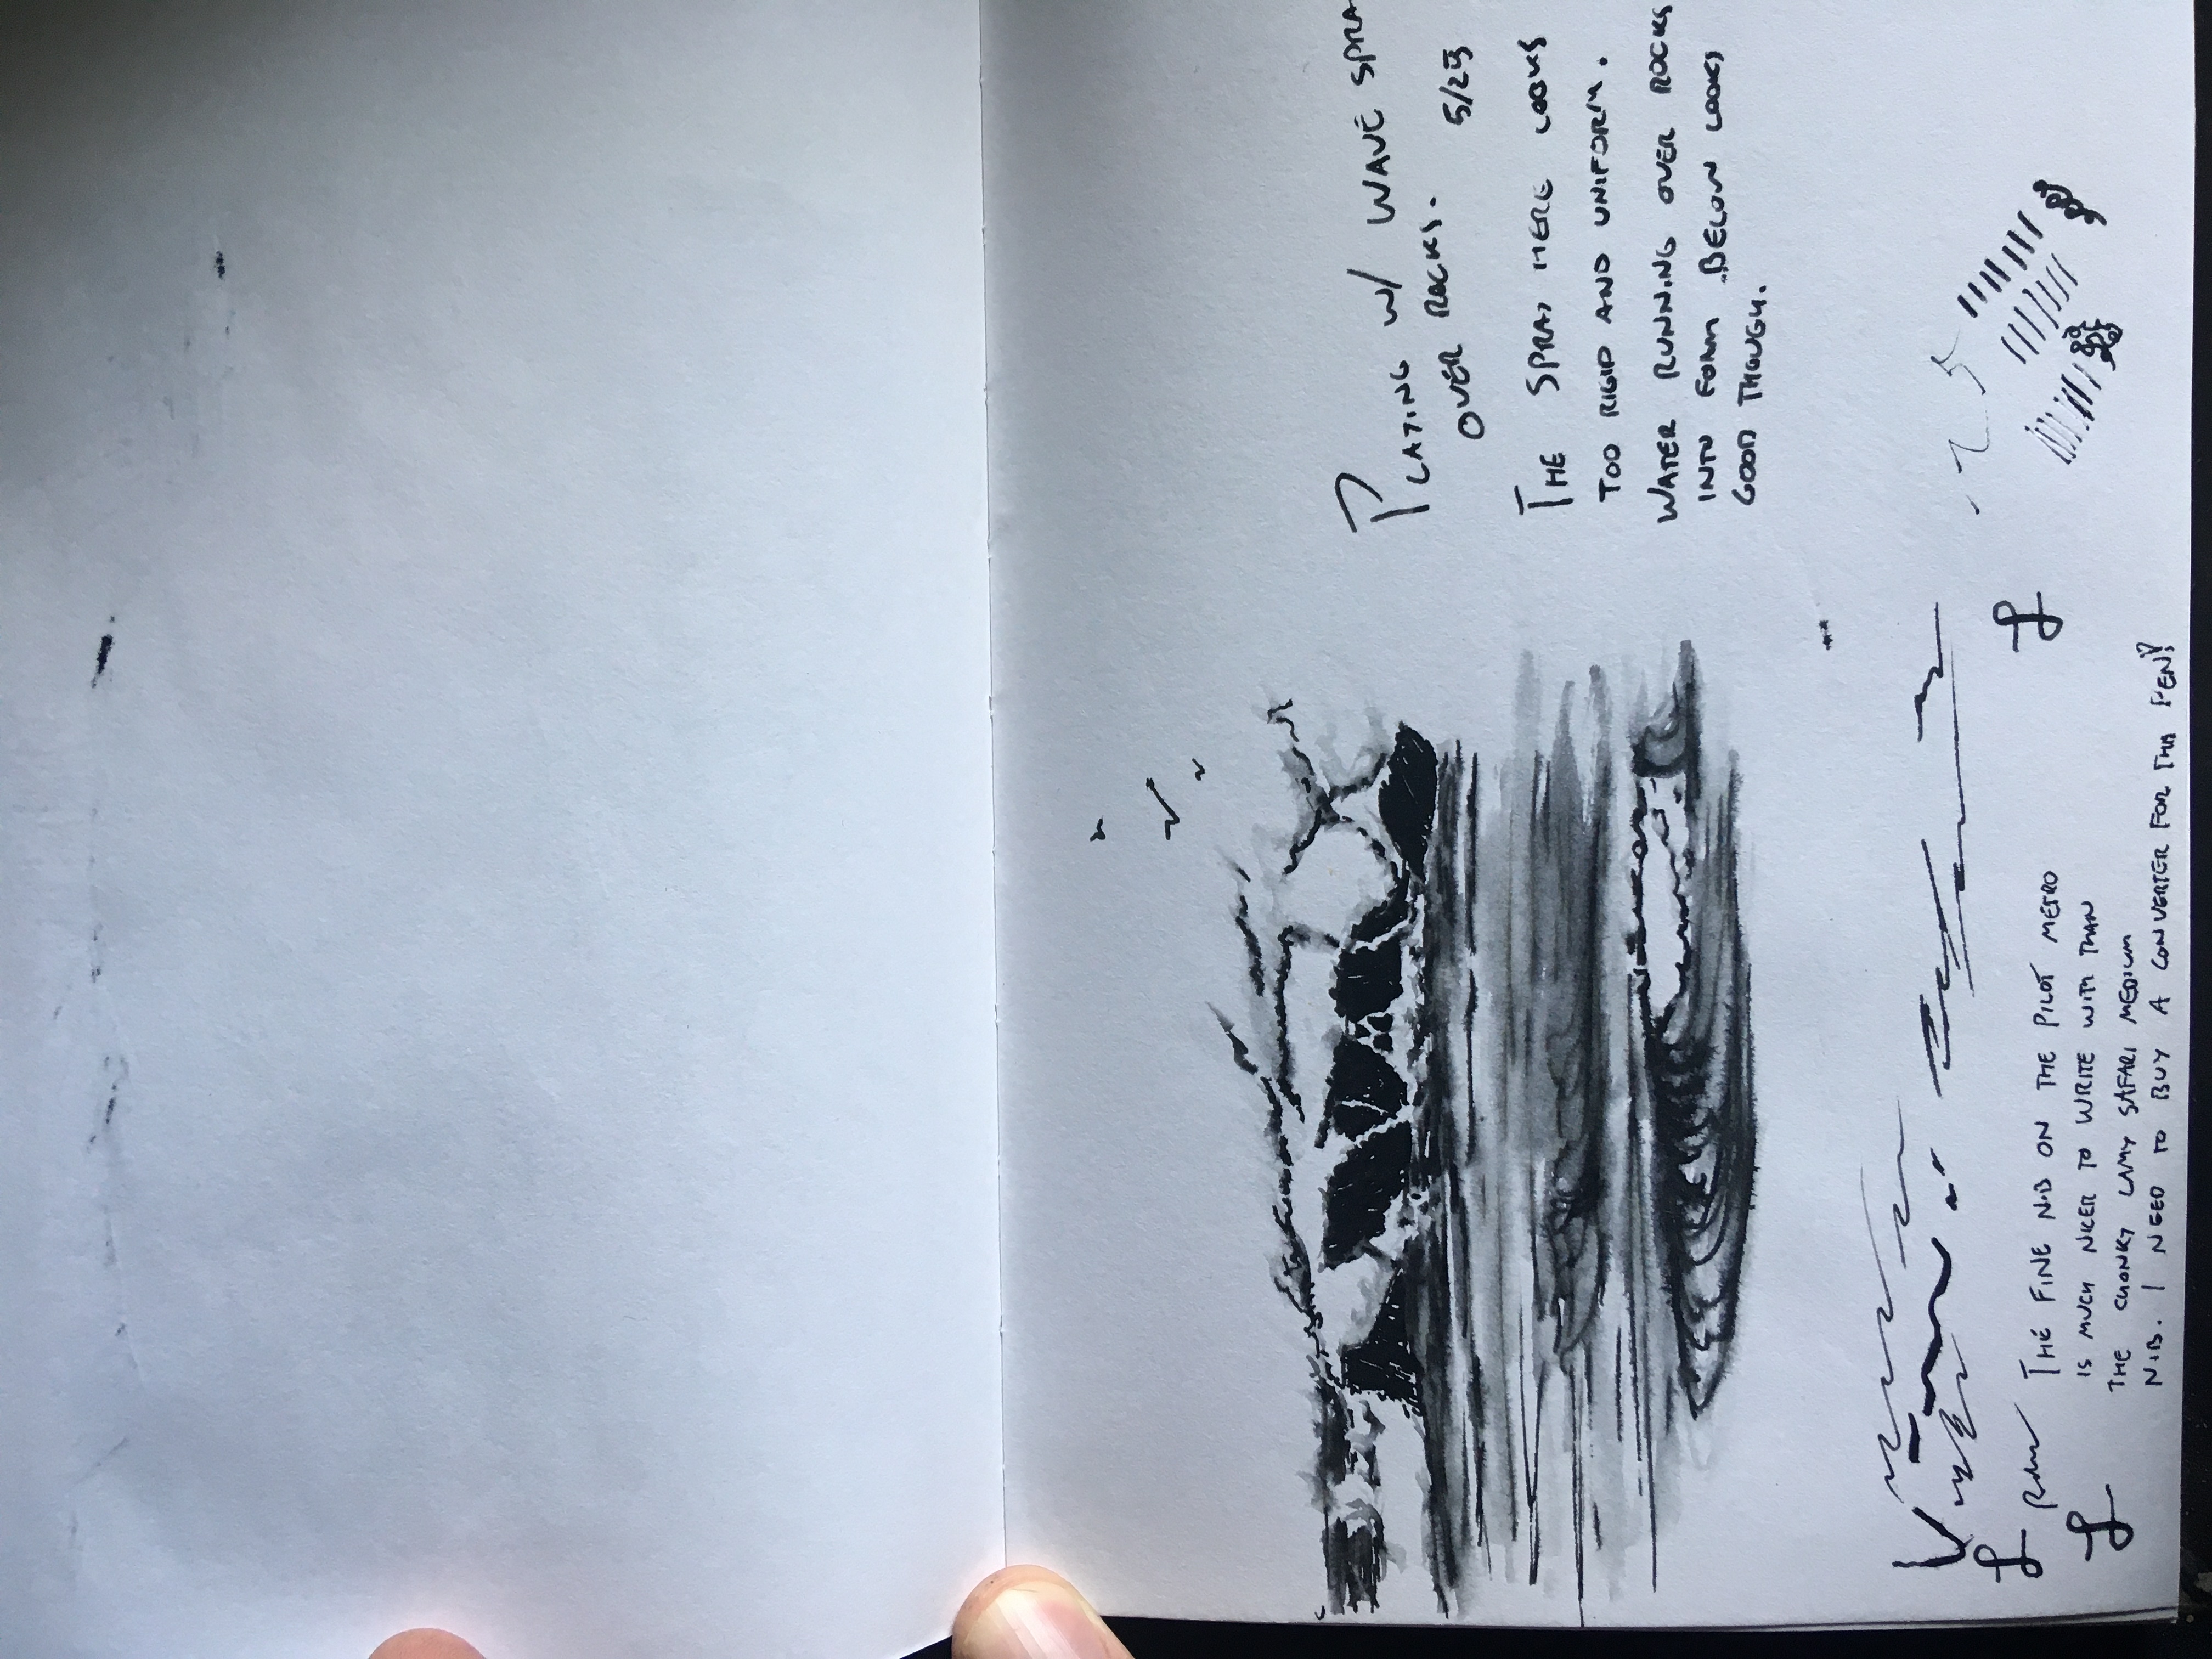 PLAYING W/ WAVE SPRA
OVER ROCKS.
5/25
THE SPRAY HERE LOOKS
TOO RIGID AND UNIFORM.
WATER RUNNING OVER ROCKS
INTO FOAM BELOW LOOKS
GOOD THOUGH.
THE FINE NIB ON THE PILOT METRO
IS MUCH NICER TO WRITE WITH THAN
THE CHONKY LAMY SAFARI MEDIUM
NIB. I NEED TO BUY A CONVERTER FOR THA PEN!